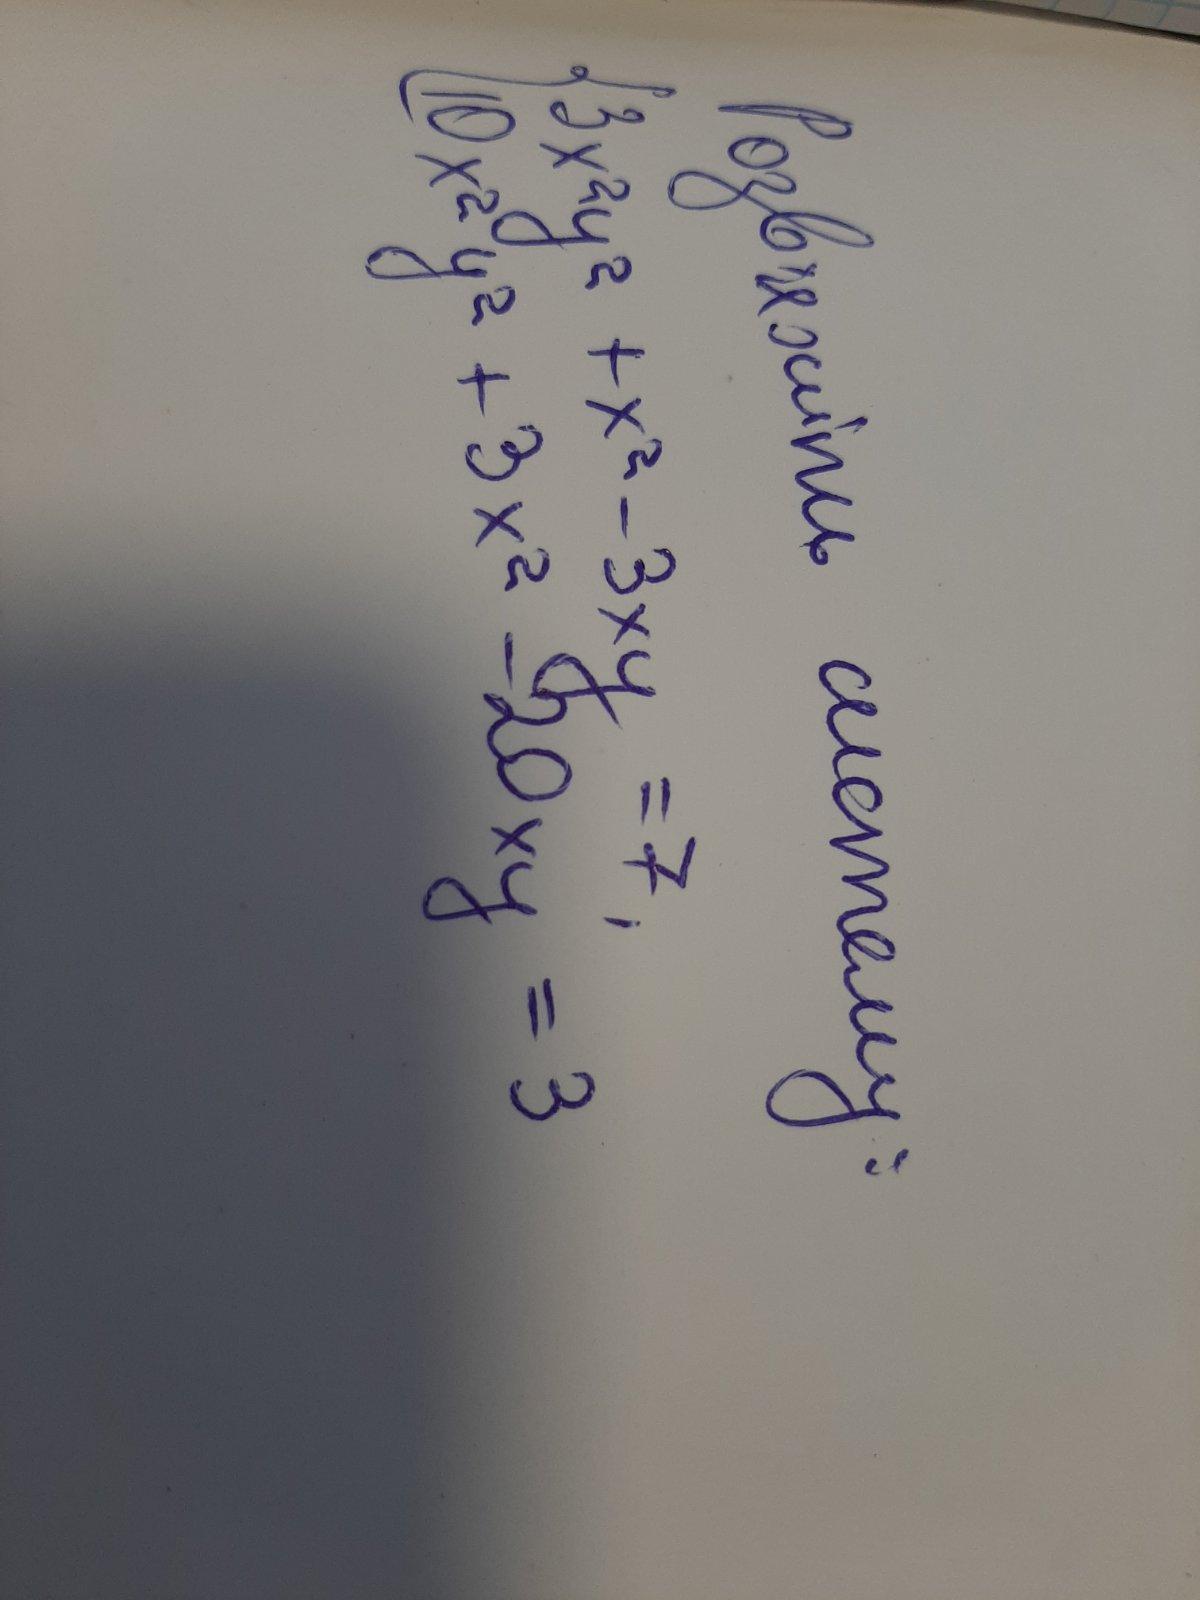 Розв'яжіть систему:
{ 3x²y² + x² - 3xy = 7,
10x²y² + 3x² - 20xy = 3